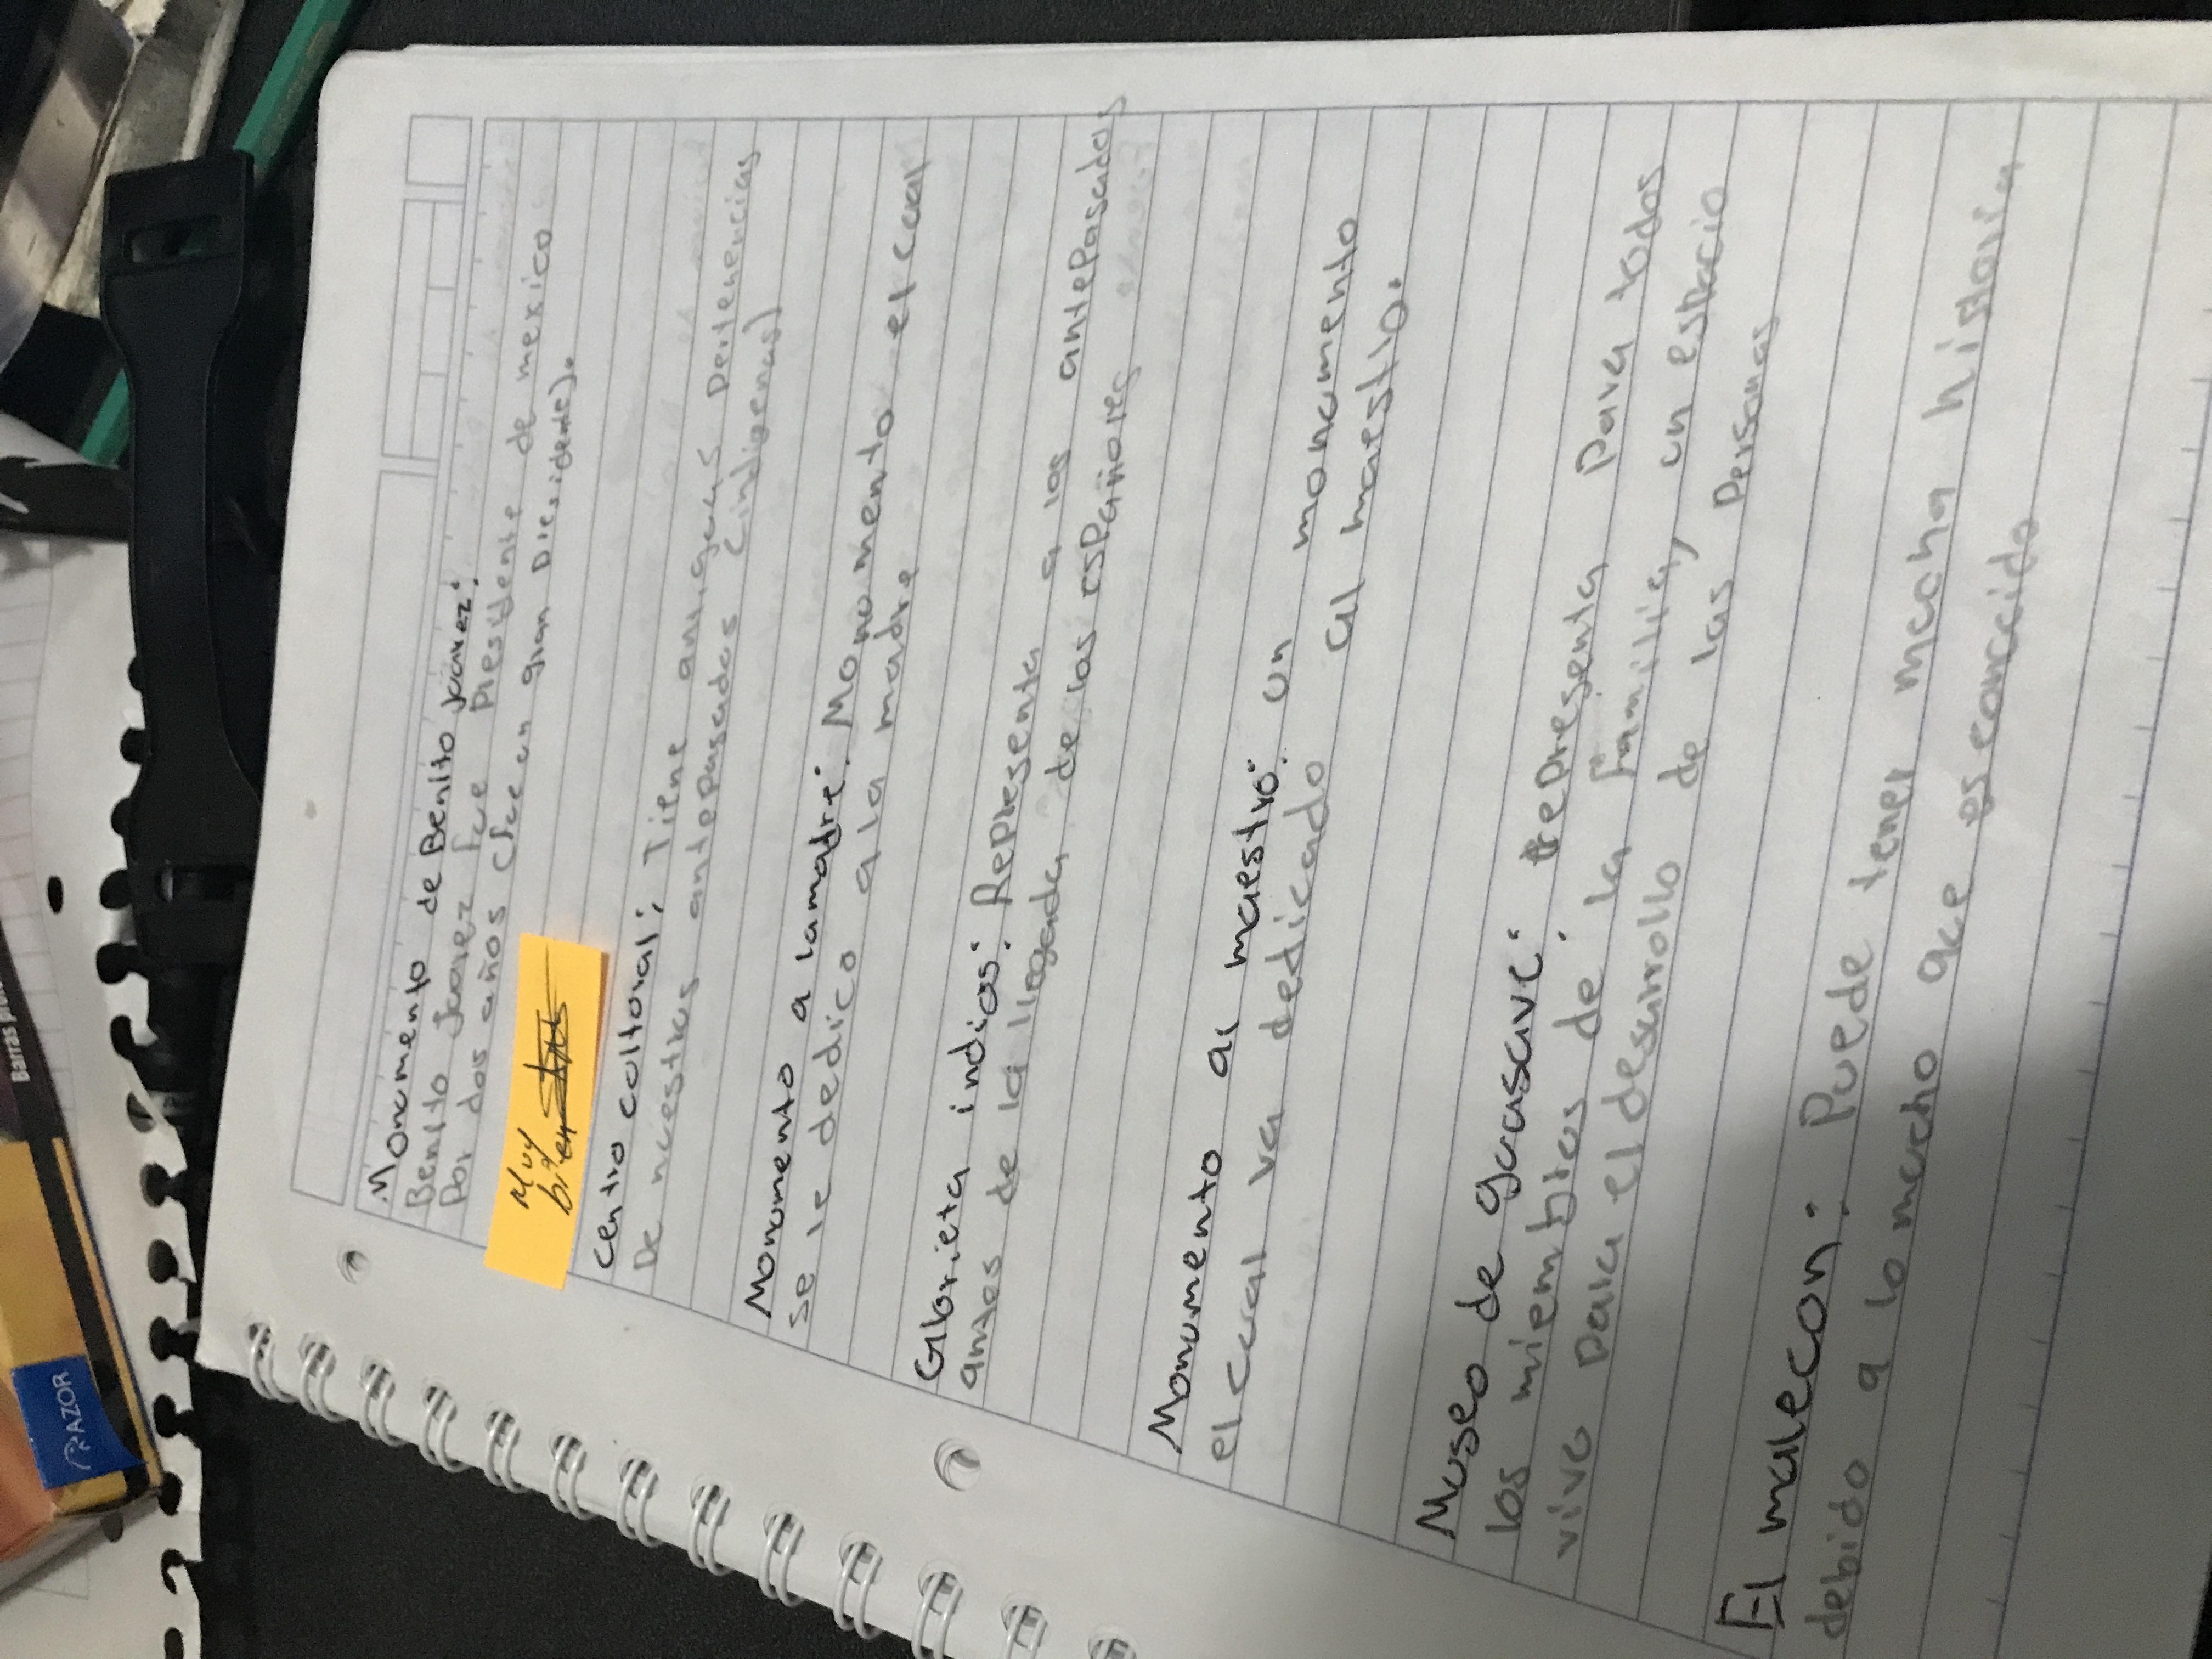 Monumento de Benito Juarez:
Benito Juarez fue Presidente de mexico
Por dos años (fue un gran Presidente).
Muy
bien
Centro coltoral: Tiene antiguas Pertenencias
De nuestros antepasados (indigenas)
Monumento a la madre: Monumento el cual
se le dedico a la madre
Glorieta indios: Representa a los antepasados
antes de la llegada de los españoles
Monumento al maestro: un monumento
el cual va dedicado al maestro.
Museo de guasave: representa Para todos
los miembros de la familia, un espacio
vivo Para el desarrollo de las Personas
El malecon: Puede tener mucha historia
debido a lo mucho que es conocido
RAZOR
Barras